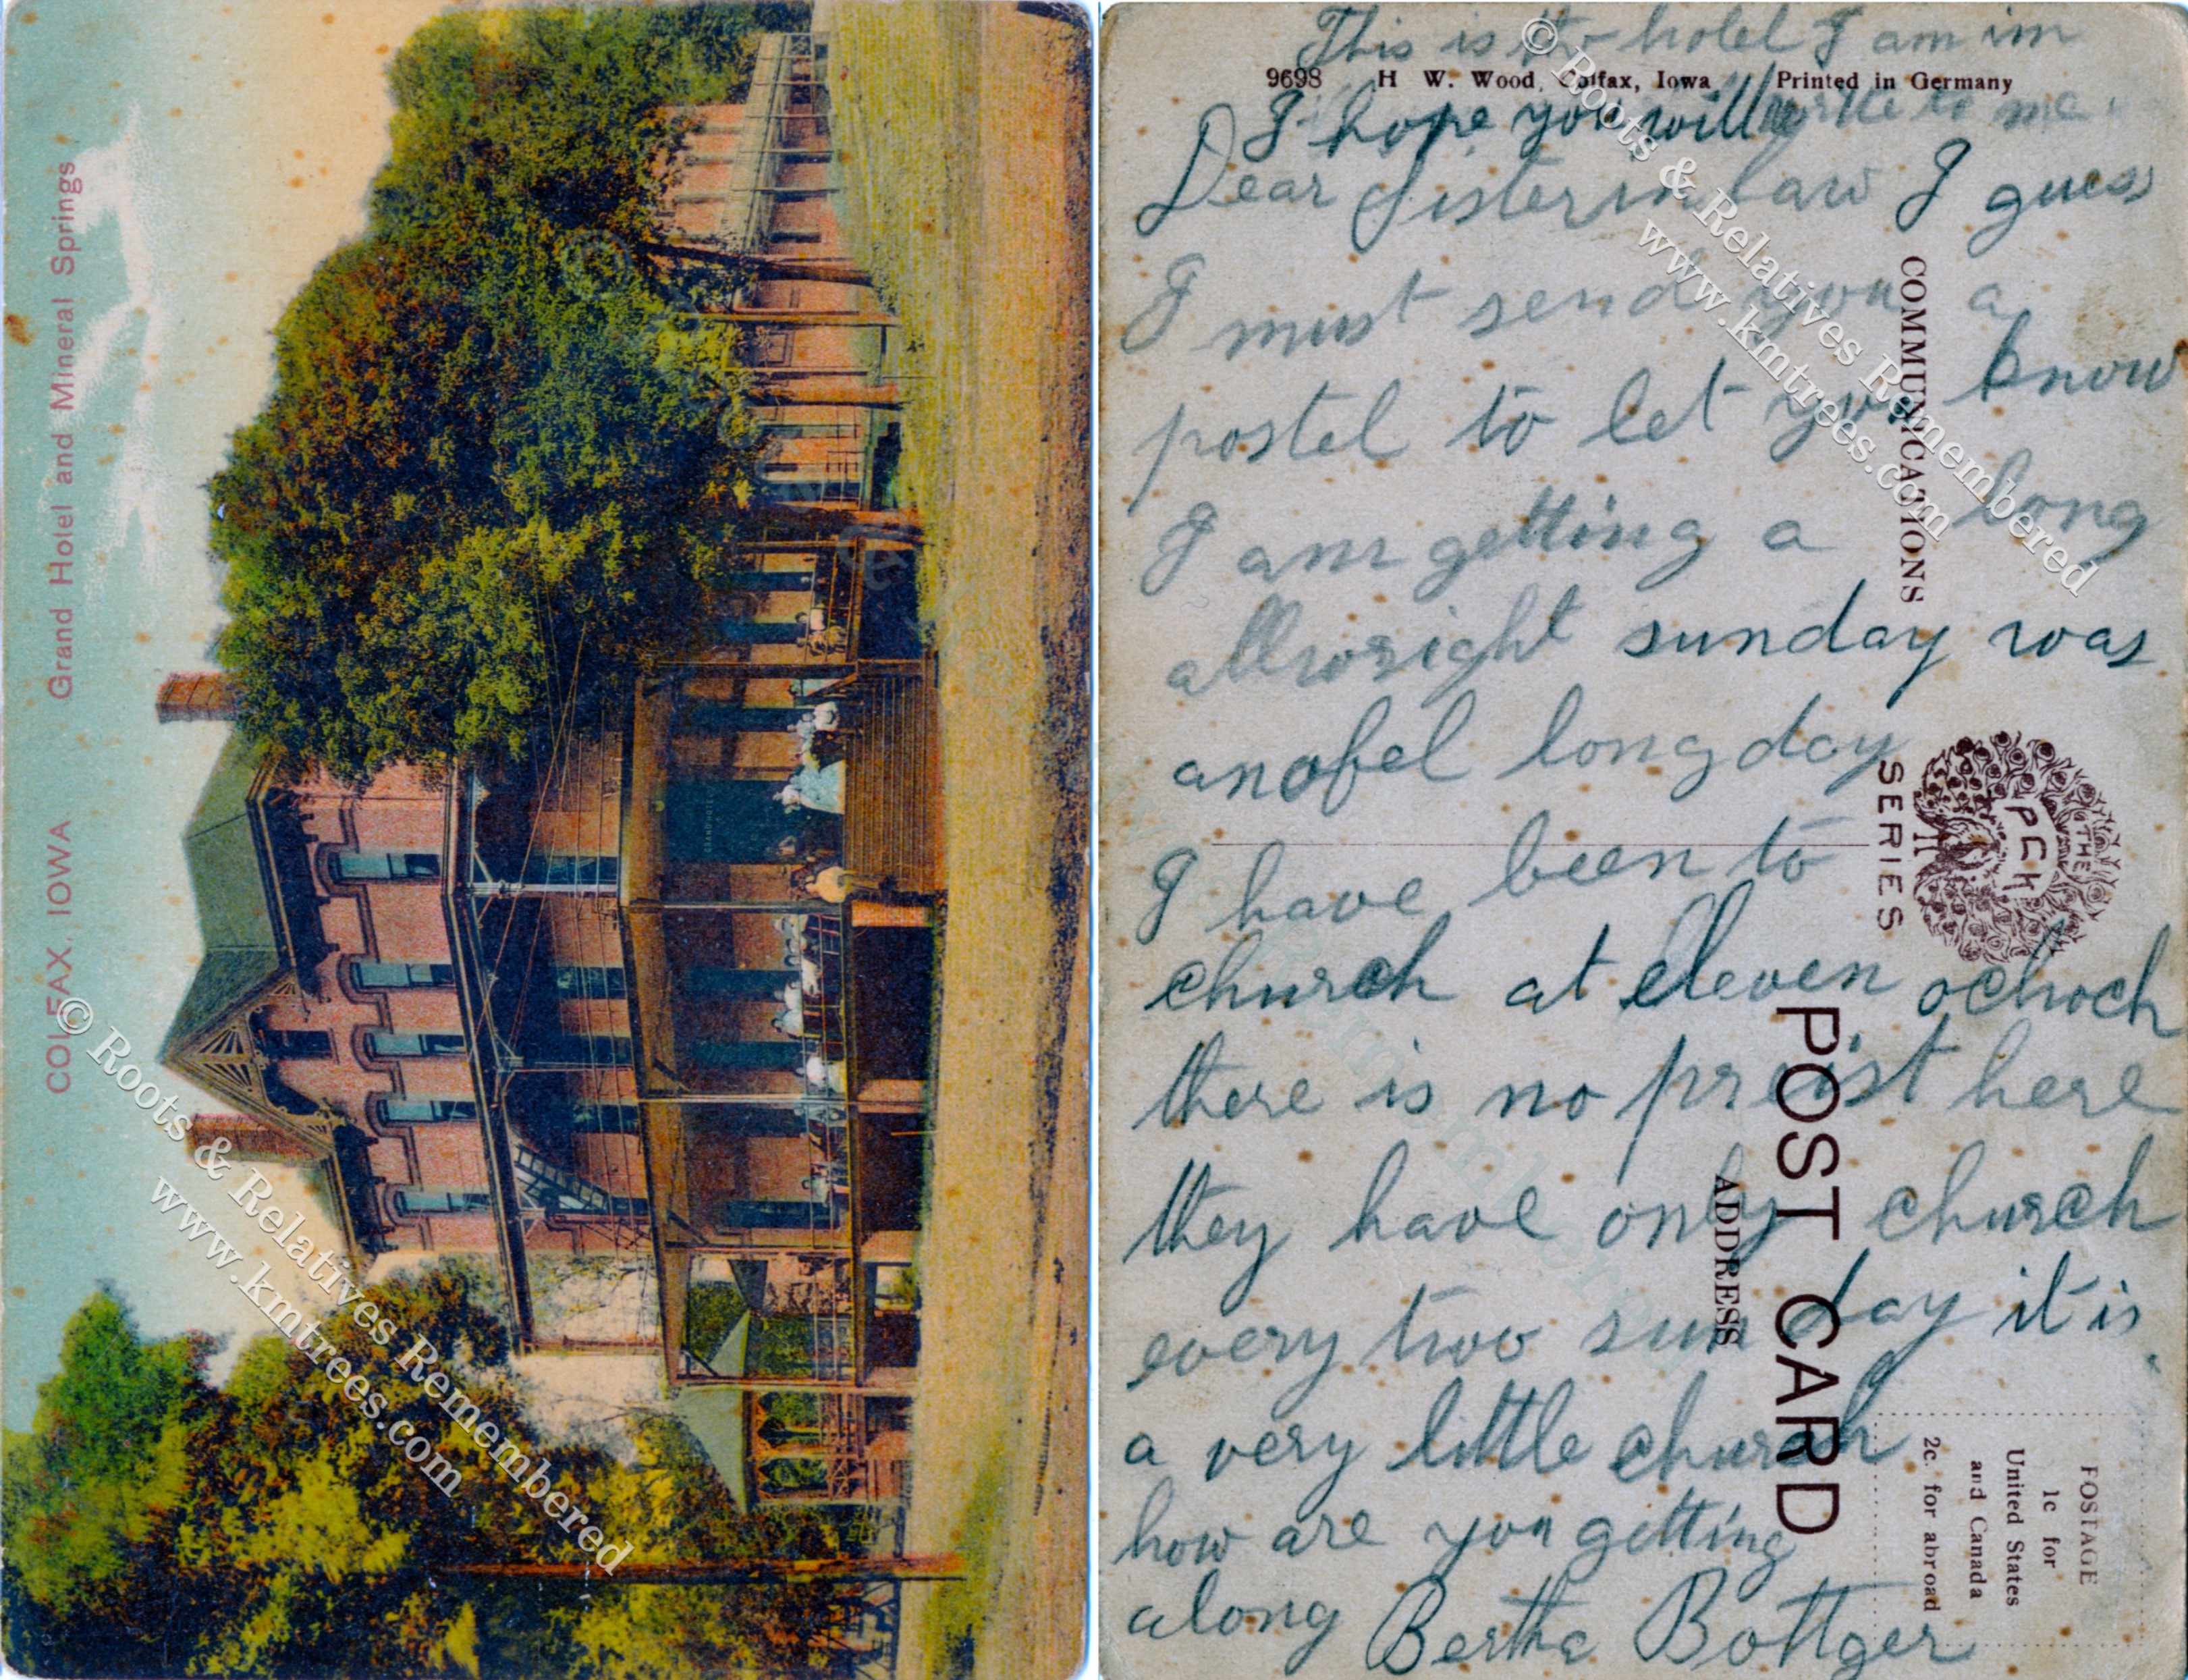 COLFAX, IOWA Grand Hotel and Mineral Springs
© Roots & Relatives Remembered
www.kmtrees.com
This is the hotel I am in
9698 H W. Wood, Colfax, Iowa Printed in Germany
I hope you will write to me.
Dear Sister in law I guess
I must send you a
postel to let you know
I am getting a long
allwright sunday was
anofel long day
I have been to
church at eleven oclock
there is no preist here
they have only church
every two sun day it is
a very little church
how are you getting
along Bertha Bottger
COMMUNICATIONS
THE
PCK
SERIES
POST CARD
ADDRESS
POSTAGE
1c for
United States
and Canada
2c. for abroad
© Roots & Relatives Remembered
www.kmtrees.com